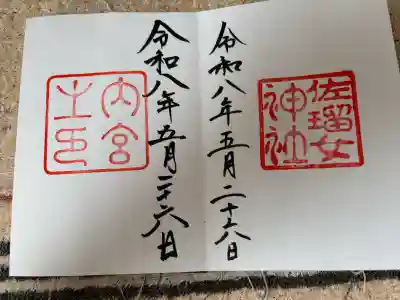 佐瑠女
神社
令和八年五月二十八日
令和八年五月二十六日
内宮
之印